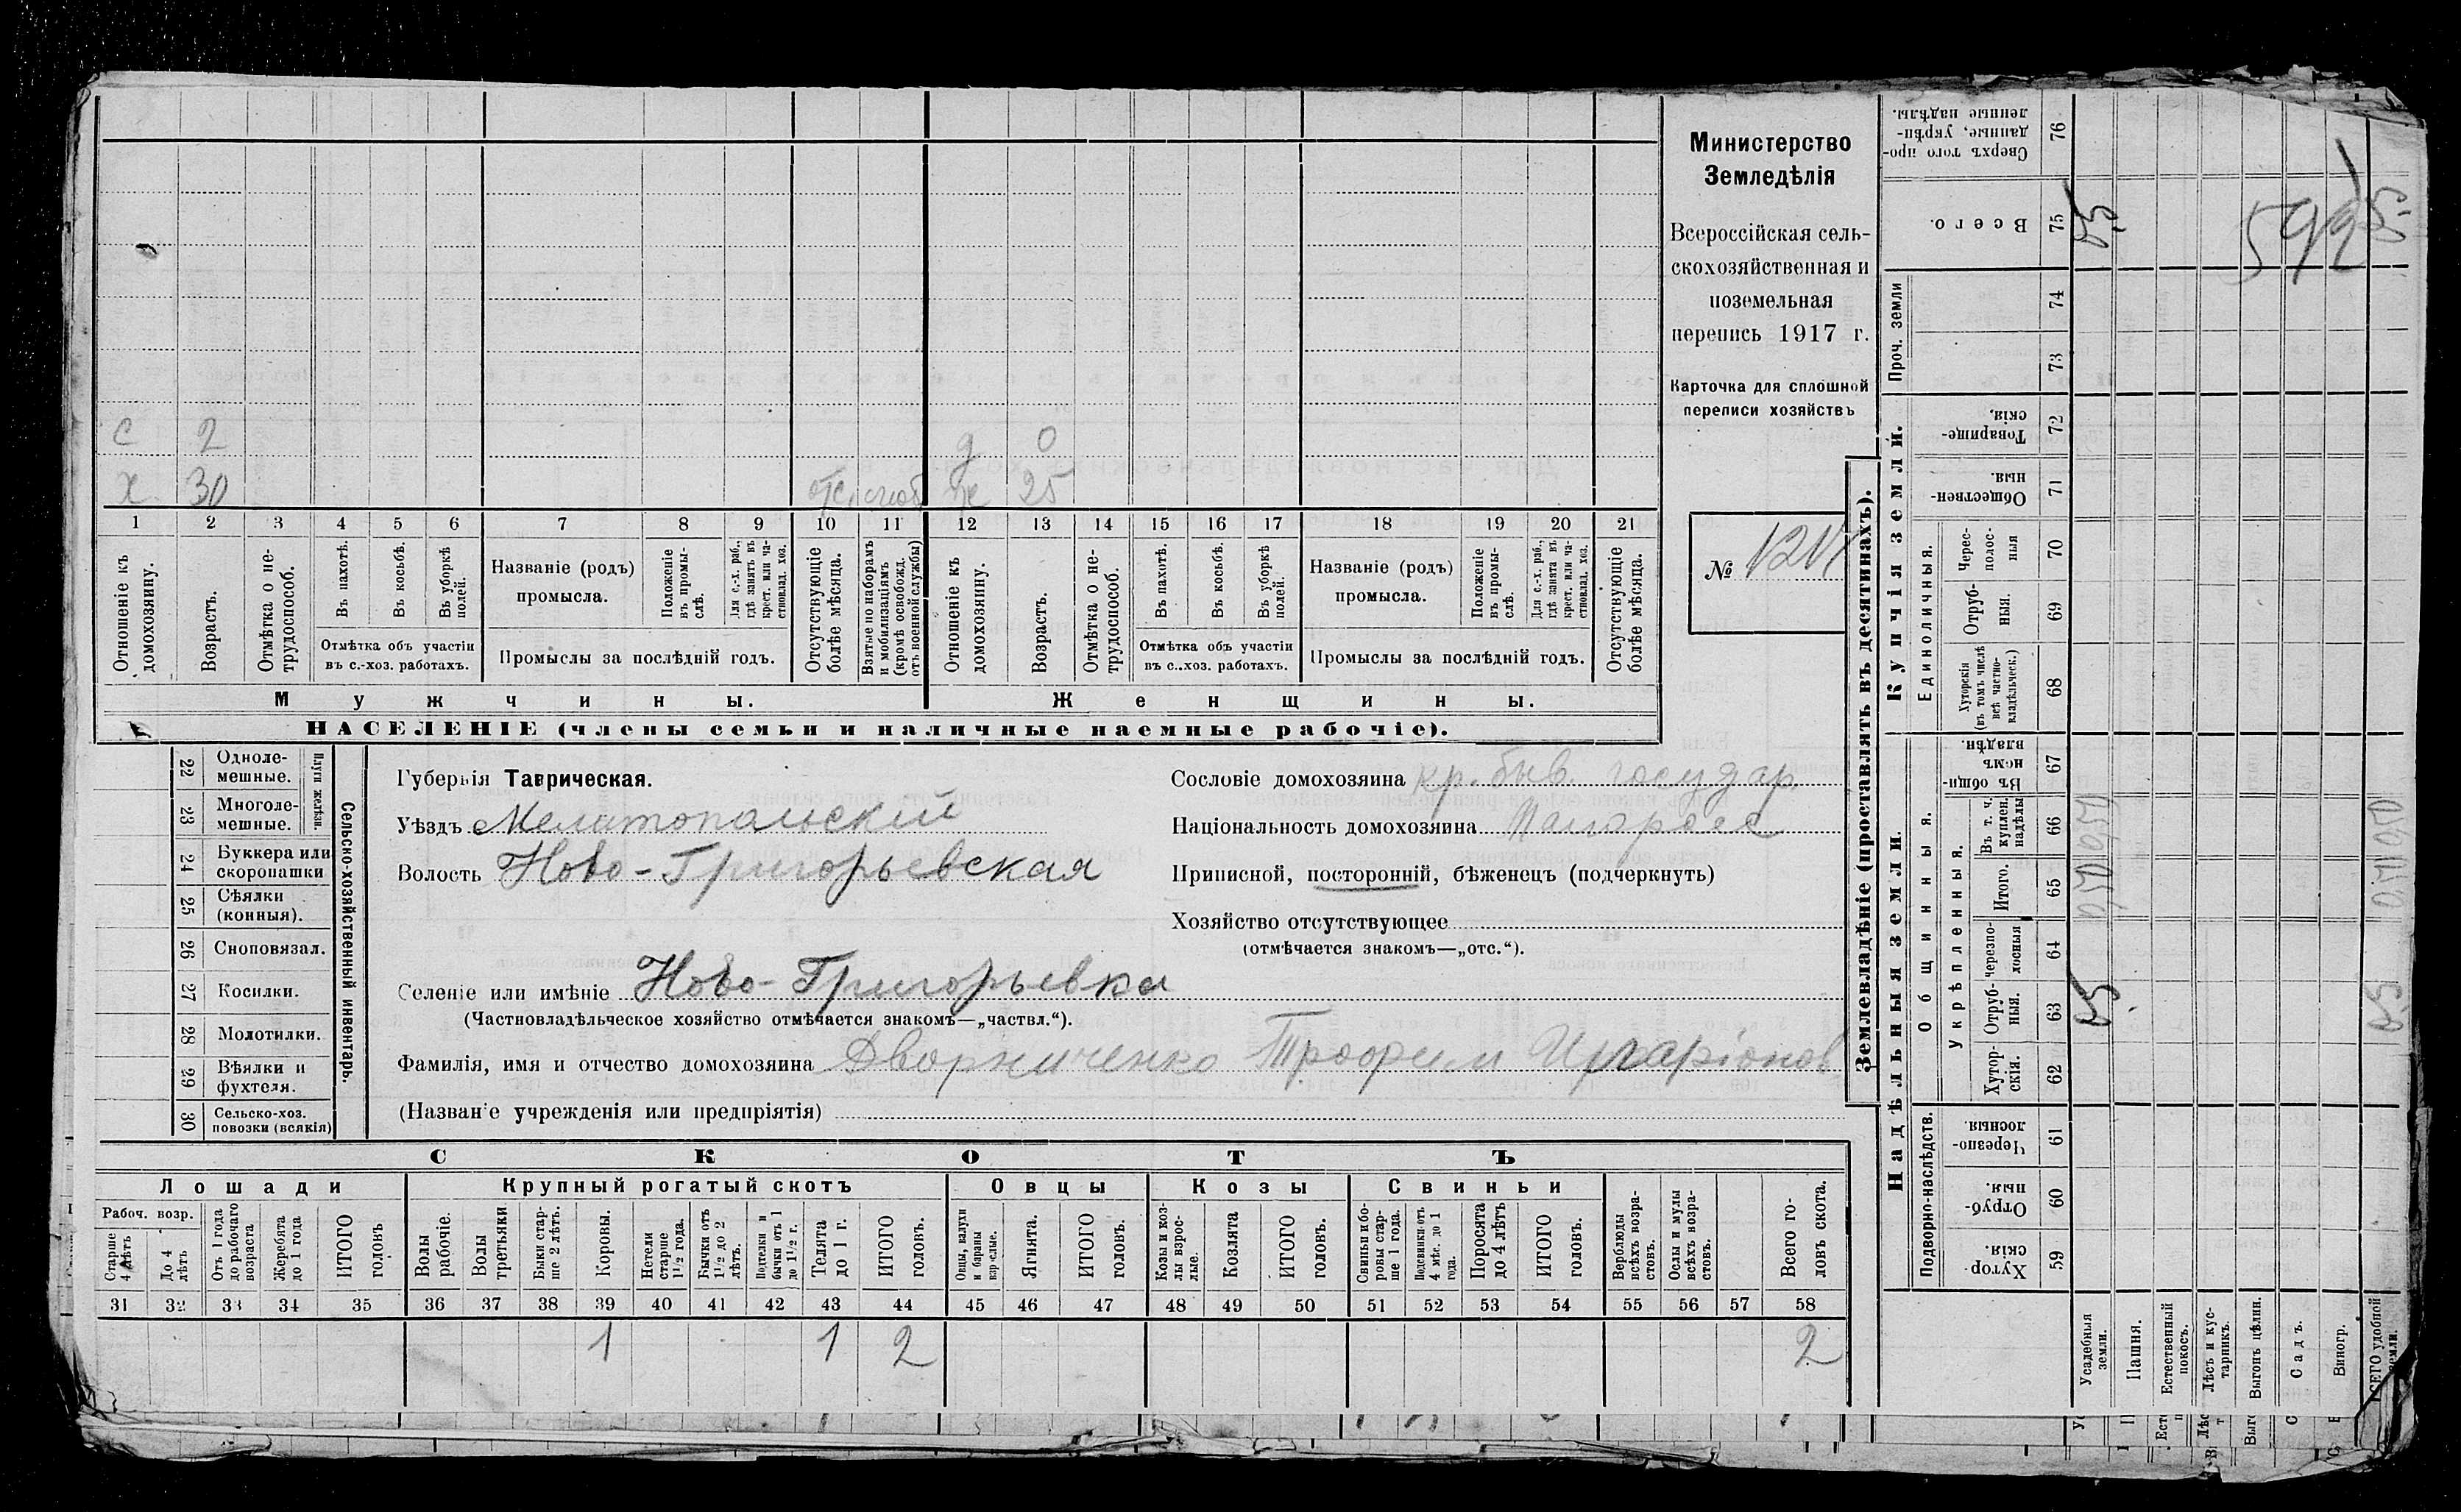 Министерство
Земледѣлія
Всероссійская сель-
скохозяйственная и
поземельная
перепись 1917 г.
Карточка для сплошной
переписи хозяйствъ
№
с 2 д 0
х 30 отс. ж 25
1 2 3 4 5 6 7 8 9 10 11 12 13 14 15 16 17 18 19 20 21
Отношеніе къ домохозяину.
Возрастъ.
Отмѣтка о не-трудоспособ.
Въ пахотѣ.
Въ косьбѣ.
Въ уборкѣ полей.
Отмѣтка объ участіи
въ с.-хоз. работахъ.
Названіе (родъ)
промысла.
Положеніе въ промы-слѣ.
Для с.-х. раб., гдѣ занятъ въ крест. или ча-стновлад. хоз.
Промыслы за послѣдній годъ.
Отсутствующіе болѣе мѣсяца.
Взятые по наборамъ и мобилизаціямъ (кромѣ освобожд. отъ военной службы)
Отношеніе къ домохозяину.
Возрастъ.
Отмѣтка о не-трудоспособ.
Въ пахотѣ.
Въ косьбѣ.
Въ уборкѣ полей.
Отмѣтка объ участіи
въ с.-хоз. работахъ.
Названіе (родъ)
промысла.
Положеніе въ промы-слѣ.
Для с.-х. раб., гдѣ занята въ крест. или ча-стновлад. хоз.
Промыслы за послѣдній годъ.
Отсутствующіе болѣе мѣсяца.
Мужчины. Женщины.
НАСЕЛЕНІЕ (члены семьи и наличные наемные рабочіе).
22 Одноле-мешные.
23 Многоле-мешные.
Плуги желѣзн.
24 Буккера или скоропашки
25 Сѣялки (конныя).
26 Сноповязал.
27 Косилки.
28 Молотилки.
29 Вѣялки и фухтеля.
30 Сельско-хоз. повозки (всякія)
Сельско-хозяйственный инвентарь.
Губернія Таврическая.
Уѣздъ Мелитопольскій
Волость Ново-Григорьевская
Селеніе или имѣніе Ново-Григорьевка
(Частновладѣльческое хозяйство отмѣчается знакомъ—„частвл.“).
Фамилія, имя и отчество домохозяина Дворниченко Трофим Иларіонов
(Названіе учрежденія или предпріятія)
Сословіе домохозяина кр. быв. государ.
Національность домохозяина
Приписной, посторонній, бѣженецъ (подчеркнуть)
Хозяйство отсутствующее
(отмѣчается знакомъ—„отс.“).
СКОТЪ
Лошади Крупный рогатый скотъ Овцы Козы Свиньи
Рабоч. возр.
Старше 4 лѣтъ
До 4 лѣтъ
Отъ 1 года до рабочаго возраста
Жеребята до 1 года
ИТОГО головъ
Волы рабочіе.
Волы третьяки
Быки стар-ше 2 лѣтъ.
Коровы.
Нетели старше 1½ года.
Бычки отъ 1½ до 2 лѣтъ.
Подтелки и бычки отъ 1 до 1½ г.
Телята до 1 г.
ИТОГО головъ.
Овцы, валухи и бараны взрослые.
Ягнята.
ИТОГО головъ.
Козы и коз-лы взрос-лые.
Козлята
ИТОГО головъ.
Свиньи и бо-ровы стар-ше 1 года.
Подсвинки отъ 4 мѣс. до 1 года.
Поросята до 4 лѣтъ
ИТОГО головъ.
Верблюды всѣхъ возра-стовъ.
Ослы и мулы всѣхъ возра-стовъ.
Всего го-ловъ скота.
31 32 33 34 35 36 37 38 39 40 41 42 43 44 45 46 47 48 49 50 51 52 53 54 55 56 57 58
1 1 2 2
Землевладѣніе (проставлять въ десятинахъ).
Надѣльныя земли.
Купчія земли.
Подворно-наслѣдств.
Общинныя.
Укрѣпленныя.
Единоличныя.
Проч. земли
Хутор-скія. 59
Отруб-ныя. 60
Черезпо-лосныя 61
Хутор-скія. 62
Отруб-ныя. 63
Черезпо-лосныя 64
Итого. 65
Въ т. ч. куплен. надѣлы 66
Въ общи-номъ владѣн. 67
Хуторскія (въ томъ числѣ всѣ частно-владѣльческ.) 68
Отруб-ныя. 69
Черес-полос-ныя 70
Обществен-ныя 71
Товарище-скія. 72
73
74
Всего. 75
Сверхъ того про-данные, укрѣп-ленные надѣлы. 76
Усадебныя земли.
Пашня.
Естественный покосъ.
Лѣсъ и кус-тарникъ.
Выгонъ цѣлин.
Садъ.
Виногр.
ВСЕГО удобной земли.
592